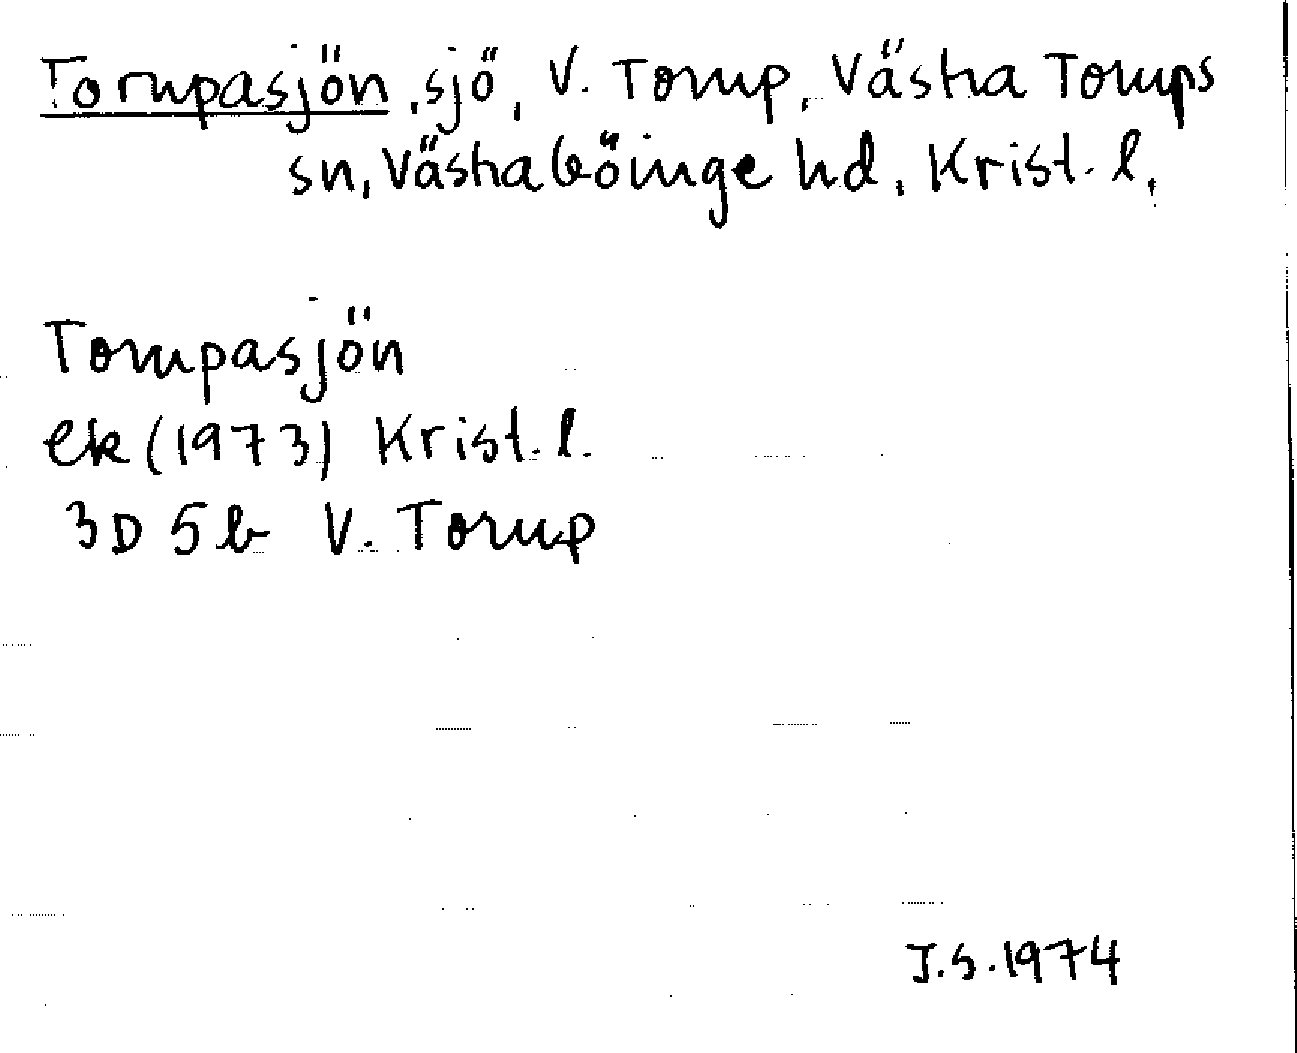 Torupasjön, sjö, V. Torup, Västra Torups
sn, Västra Göinge hd, Krist. l.
Torupasjön
ek (1973) Krist. l.
3D 5b V. Torup
J.S. 1974